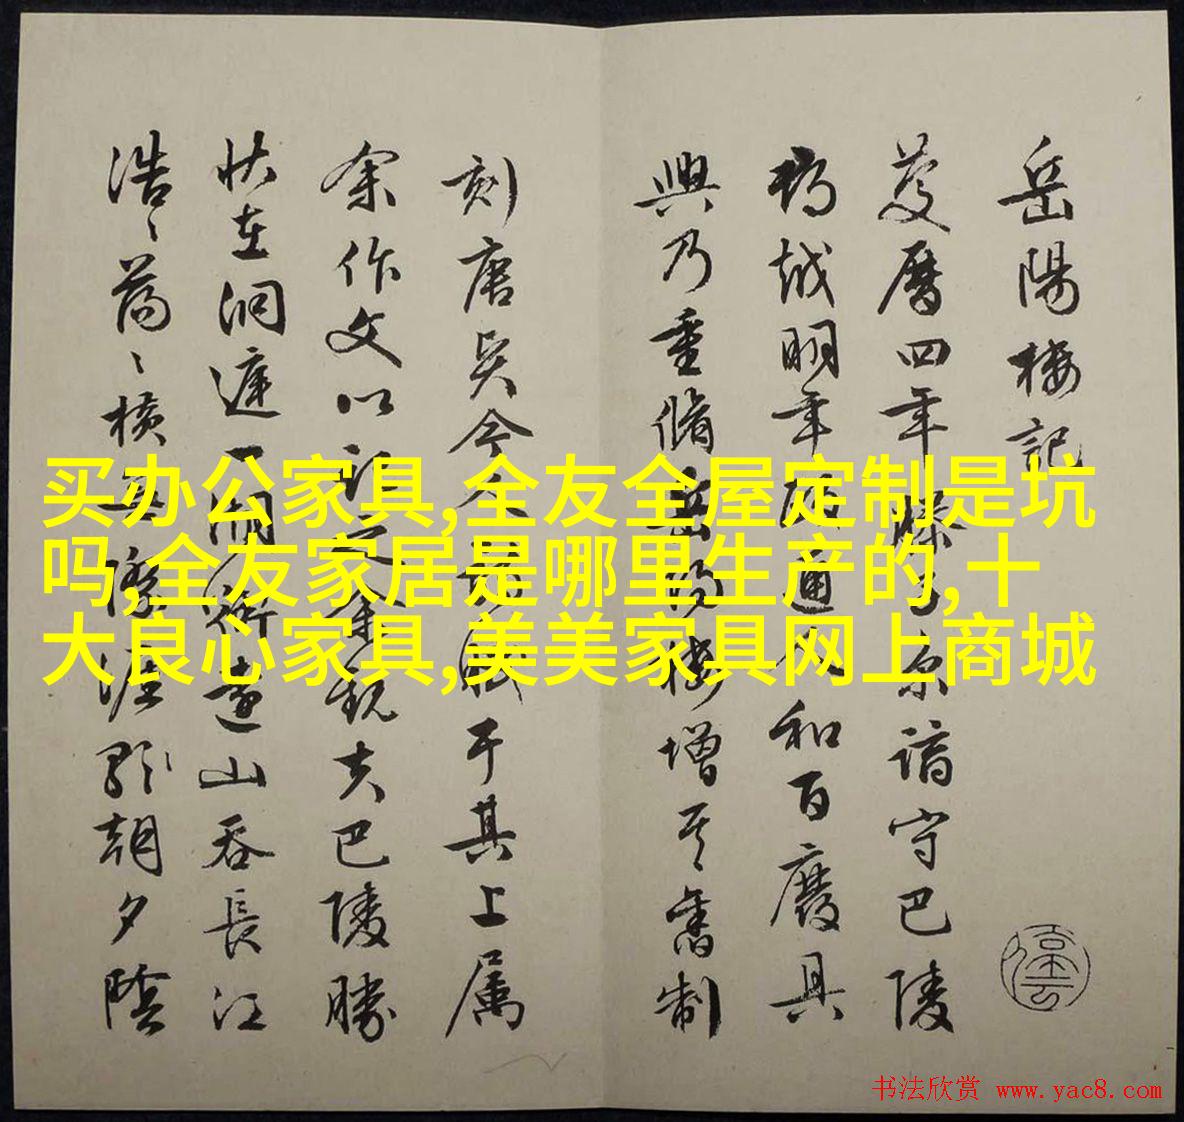 岳陽樓記
慶曆四年滕子京謫守巴陵
郡越明年政通人和百廢具
興乃重脩岳陽樓增其舊制
刻唐賢今人詩賦于其上属
余作文以記之余觀夫巴陵勝
狀在洞庭一湖銜遠山吞長江
浩〻蕩〻橫無際涯朝夕陰
买办公家具,全友全屋定制是坑
吗,全友家居是哪里生产的,十
大良心家具,美美家具网上商城
书法欣赏 www.yac8.com